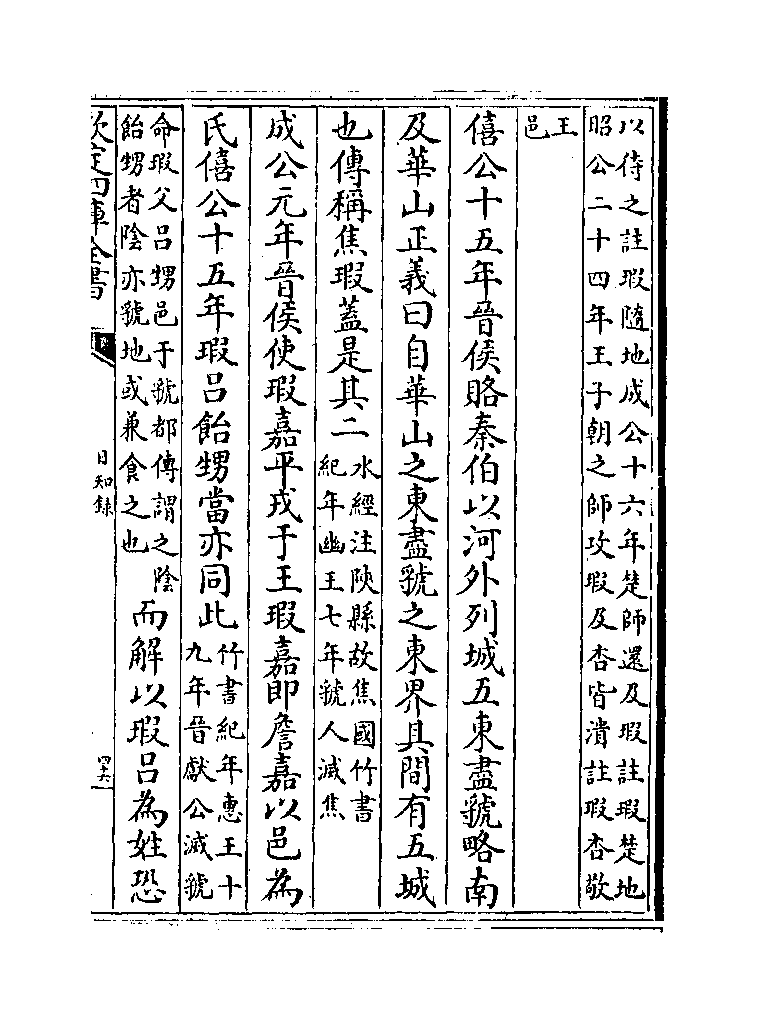 以待之註瑕隨地成公十六年楚師還及瑕註瑕楚地
昭公二十四年王子朝之師攻瑕及杏皆潰註瑕杏敬
王
邑
僖公十五年晉侯賂秦伯以河外列城五東盡虢略南
及華山正義曰自華山之東盡虢之東界其間有五城
也傳稱焦瑕蓋是其二
水經注陜縣故焦國竹書
紀年幽王七年虢人滅焦
成公元年晉侯使瑕嘉平戎于王瑕嘉即詹嘉以邑為
氏僖公十五年瑕吕飴甥當亦同此
竹書紀年惠王十
九年晉獻公滅虢
命瑕父吕甥邑于虢都傳謂之陰
飴甥者陰亦虢地或兼食之也
而解以瑕吕為姓恐
欽定四庫全書
日知錄
四十六